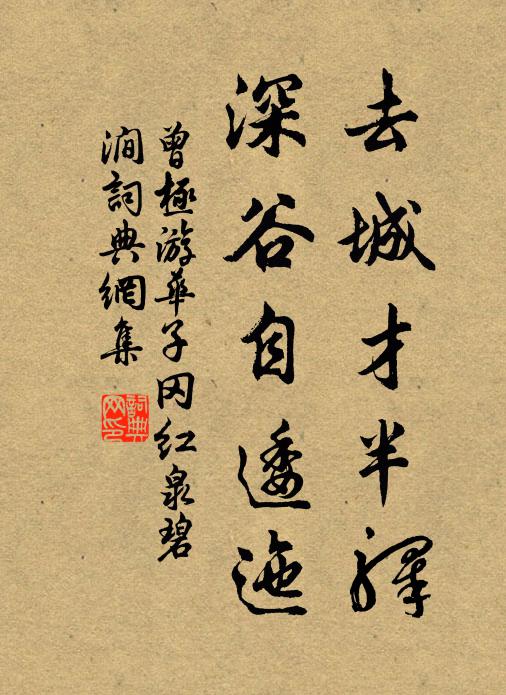 去城才半驛
深谷自逶迤
曾極游華子冈红泉碧
澗詞典網集
詞典網印